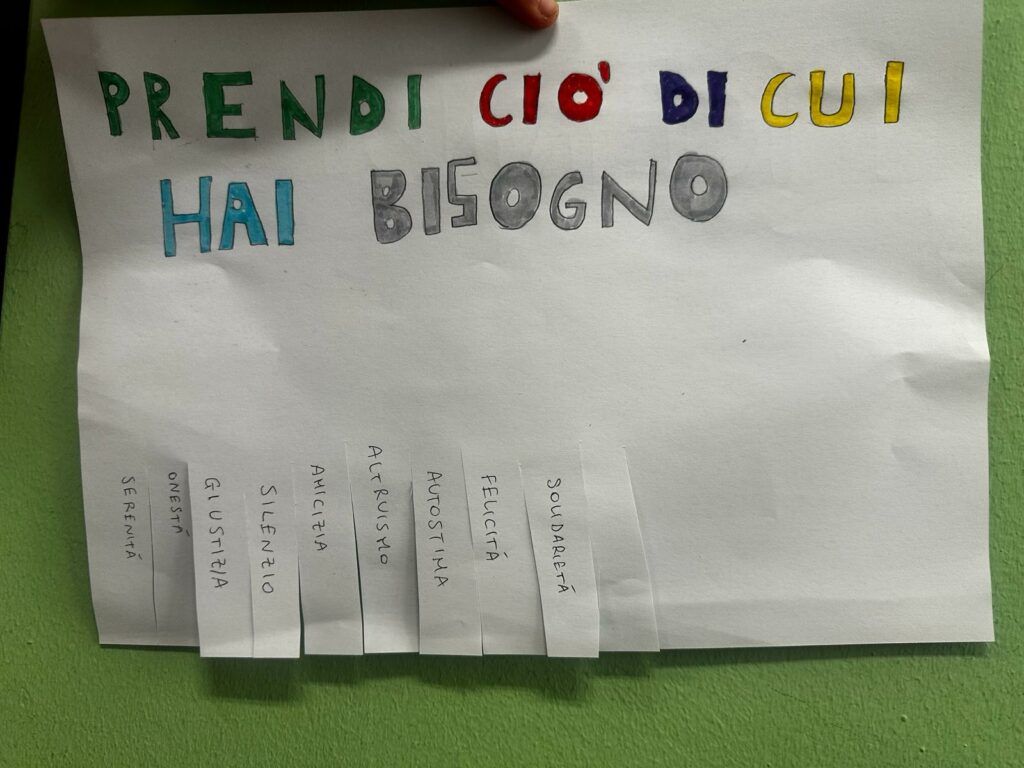 PRENDI CIO' DI CUI
HAI BISOGNO
SERENITÁ
ONESTÁ
GIUSTIZIA
SILENZIO
AMICIZIA
ALTRUISMO
AUTOSTIMA
FELICITÁ
SOLIDARIETÁ